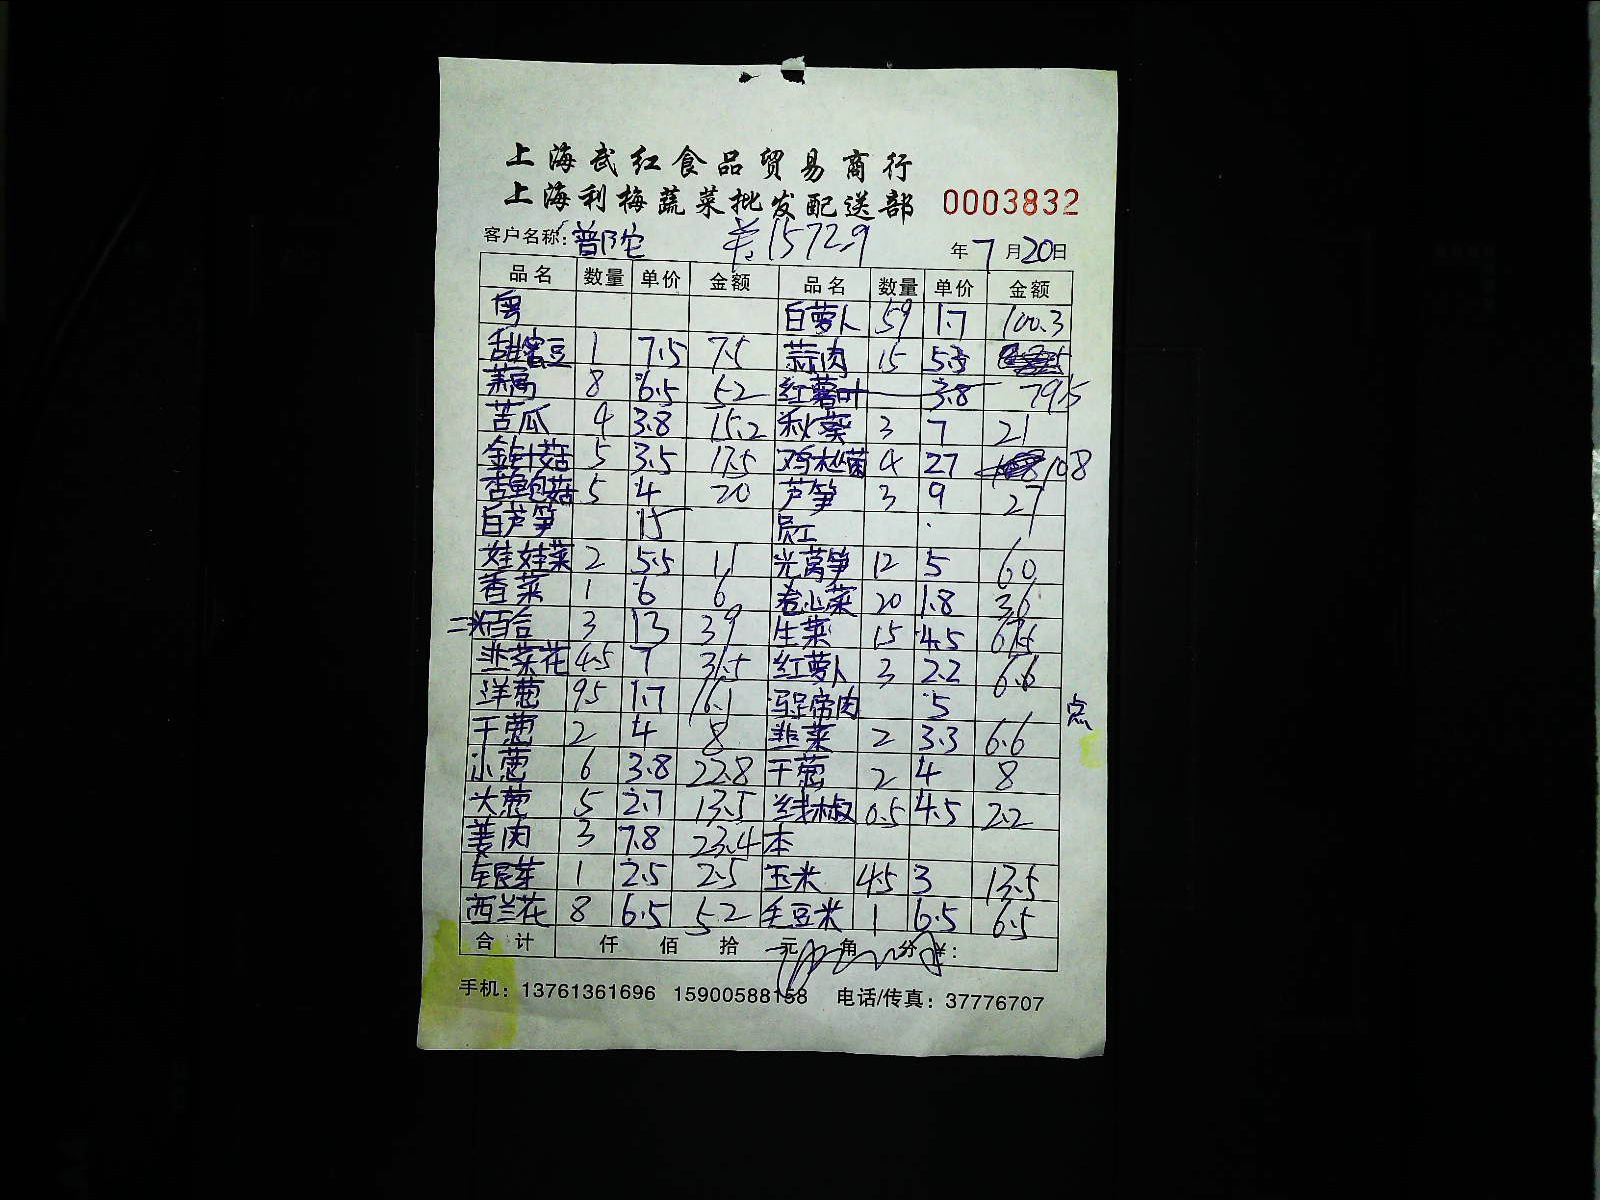 上海武红食品贸易商行
上海利梅蔬菜批发配送部 0003832
客户名称: 普陀 ¥:1572.9 年7月20日
品名 数量 单价 金额 品名 数量 单价 金额
粤 白萝卜 59 1.7 100.3
甜蜜豆 1 7.5 7.5 蒜肉 15 5.3
8 6.5 52 红薯叶 3.8 79.5
苦瓜 4 3.8 15.2 秋葵 3 7 21
金针菇 5 3.5 17.5 鸡枞菌 4 27 108
杏鲍菇 5 4 20 芦笋 3 9 27
白芦笋 15 员工
娃娃菜 2 5.5 11 光莴笋 12 5 60
香菜 1 6 6 卷心菜 20 1.8 36
百合 3 13 39 生菜 15 4.5 67.5
韭菜花 4.5 7 31.5 红萝卜 3 2.2 6.6
洋葱 9.5 1.7 16.1 马蹄肉 5 点
干葱 2 4 8 韭菜 2 3.3 6.6
小葱 6 3.8 22.8 干葱 2 4 8
大葱 5 2.7 13.5 线椒 0.5 4.5 2.2
姜肉 3 7.8 23.4 本
银芽 1 2.5 2.5 玉米 4.5 3 13.5
西兰花 8 6.5 52 毛豆米 1 6.5 6.5
合计 仟 佰 拾 元 角 分 ¥:
手机: 13761361696 15900588158 电话/传真: 37776707